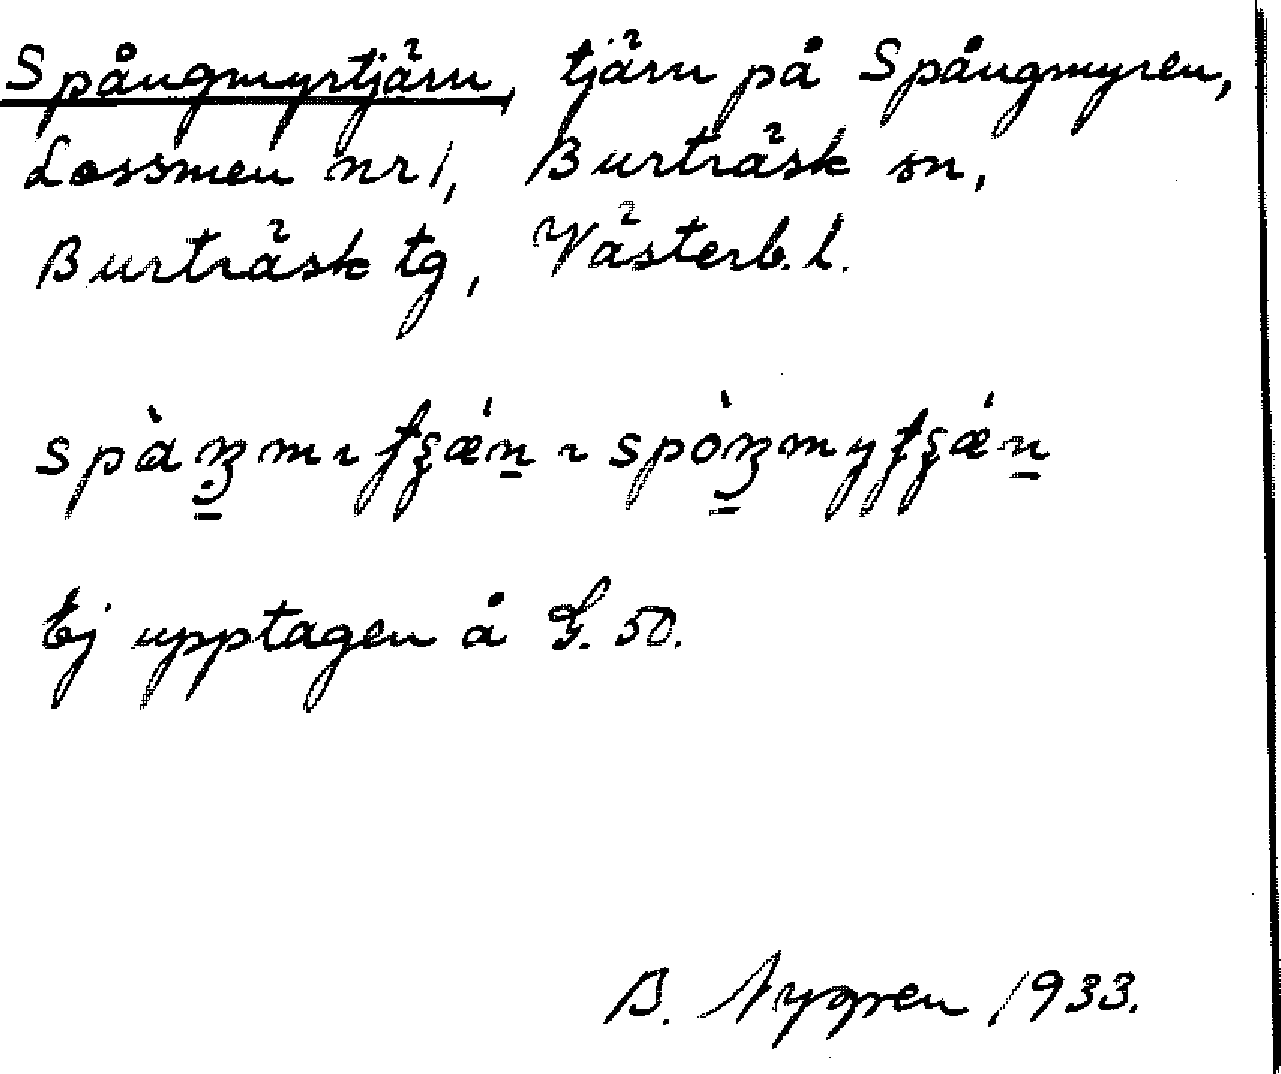 Spångmyrtjärn, tjärn på Spångmyren,
Lossmen nr 1, Burträsk sn,
Burträsk tg, Västerb. l.
Ej upptagen å G. 50.
B. Nygren 1933.